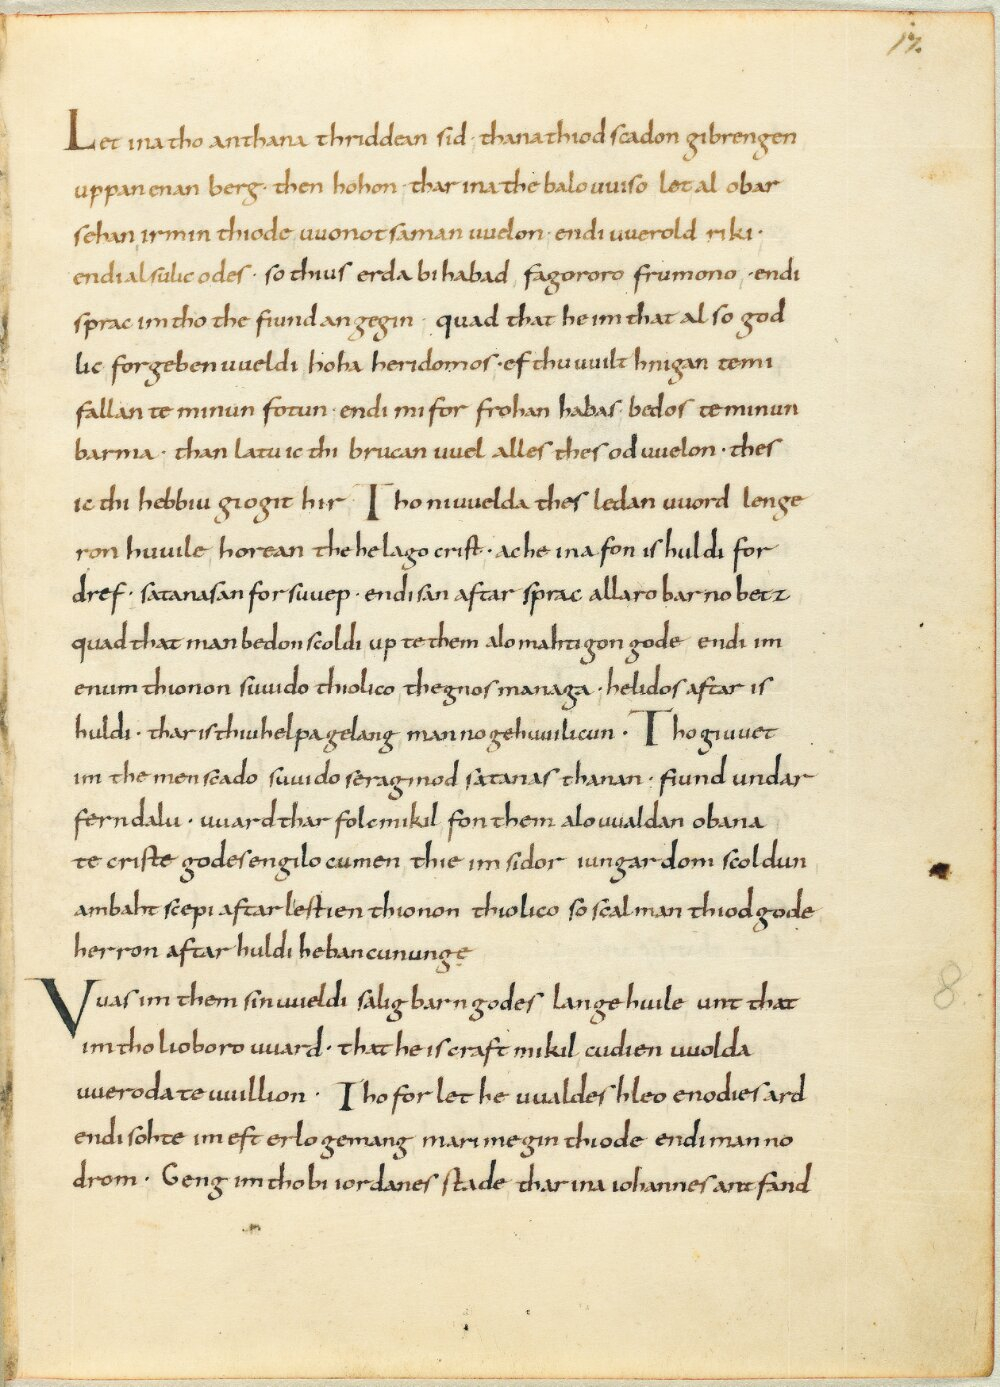 17.
Let ina tho an thana thriddean sid · thana thiod scadon gibrengen
uppan enan berg · then hohon · thar ina the balo uuiso let al obar
sehan irmin thiode uuonotsaman uuelon · endi uuerold riki ·
endi al sulic odes · so thius erda bi habad fagororo frumono · endi
sprac im tho the fiund angegin · quad that he im that al so god
lic forgeben uueldi hoha heridomos · ef thu uuilt hnigan te mi
fallan te minun fotun · endi mi for frohan habas · bedos te minun
barma · than latu ic thi brucan uuel alles thes od uuelon · thes
ic thi hebbiu giogit hir Tho ni uuelda thes ledan uuord lenge
ron huuile horean the helago crist · ac he ina fon is huldi for
dref · satanasan for suuep · endi san aftar sprac allaro barno betz
quad that man bedon scoldi up te them alomahtigon gode endi im
enum thionon suuido thiolico thegnos managa · helidos aftar is
huldi · thar is thiu helpa gelang manno gehuuilicun · Tho giuuet
im the menscado suuido seragmod satanas thanan · fiund undar
ferndalu · uuard thar folc mikil fon them alouualdan obana
te criste godes engilo cumen thie im sidor iungardom scoldun
ambaht scepi aftar lestien thionon thiolico so scal man thiodgode
herron aftar huldi hebancununge
Vuas im them sinuueldi salig barn godes lange huile unt that
im tho lioboro uuard · that he is craft mikil cudien uuolda
uueroda te uuillion · Tho for let he uualdes hleo enodies ard
endi sohte im eft erlo gemang mari megin thiode endi manno
drom · Geng im tho bi iordanes stade thar ina iohannes antfand
8